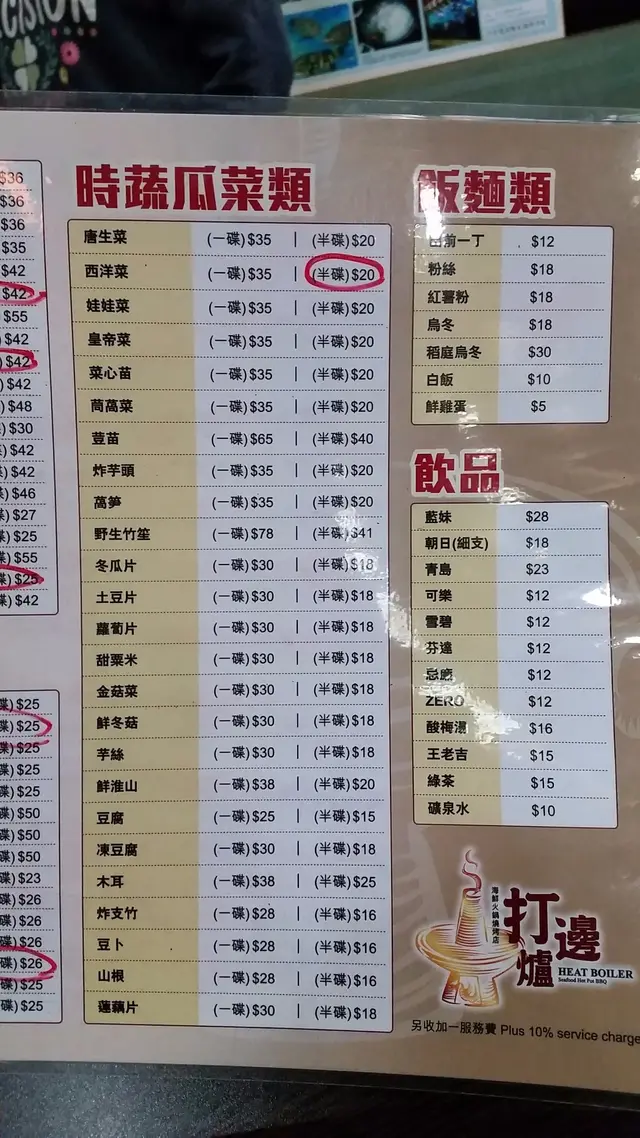 CISION
$36
$36
$36
$35
$42
$42
$55
$42
$42
$42
$48
$30
碟)$42
碟)$42
碟)$46
碟)$27
碟)$25
碟)$55
碟)$25
碟)$42
碟)$25
碟)$25
碟)$25
碟)$25
碟)$25
碟)$50
碟)$50
碟)$50
碟)$23
碟)$26
碟)$26
碟)$26
碟)$26
碟)$25
碟)$25
時蔬瓜菜類
唐生菜 (一碟)$35 | (半碟)$20
西洋菜 (一碟)$35 | (半碟)$20
娃娃菜 (一碟)$35 | (半碟)$20
皇帝菜 (一碟)$35 | (半碟)$20
菜心苗 (一碟)$35 | (半碟)$20
茼萵菜 (一碟)$35 | (半碟)$20
荳苗 (一碟)$65 | (半碟)$40
炸芋頭 (一碟)$35 | (半碟)$20
萵笋 (一碟)$35 | (半碟)$20
野生竹笙 (一碟)$78 | (半碟)$41
冬瓜片 (一碟)$30 | (半碟)$18
土豆片 (一碟)$30 | (半碟)$18
蘿蔔片 (一碟)$30 | (半碟)$18
甜粟米 (一碟)$30 | (半碟)$18
金菇菜 (一碟)$30 | (半碟)$18
鮮冬菇 (一碟)$30 | (半碟)$18
芋絲 (一碟)$30 | (半碟)$18
鮮淮山 (一碟)$38 | (半碟)$20
豆腐 (一碟)$25 | (半碟)$15
凍豆腐 (一碟)$30 | (半碟)$18
木耳 (一碟)$38 | (半碟)$25
炸支竹 (一碟)$28 | (半碟)$16
豆卜 (一碟)$28 | (半碟)$16
山根 (一碟)$28 | (半碟)$16
蓮藕片 (一碟)$30 | (半碟)$18
飯麵類
出前一丁 $12
粉絲 $18
紅薯粉 $18
烏冬 $18
稻庭烏冬 $30
白飯 $10
鮮雞蛋 $5
飲品
藍妹 $28
朝日(細支) $18
青島 $23
可樂 $12
雪碧 $12
芬達 $12
忌廉 $12
ZERO $12
酸梅湯 $16
王老吉 $15
綠茶 $15
礦泉水 $10
海鮮火鍋燒烤店
打邊爐
HEAT BOILER
Seafood Hot Pot BBQ
另收加一服務費 Plus 10% service charge